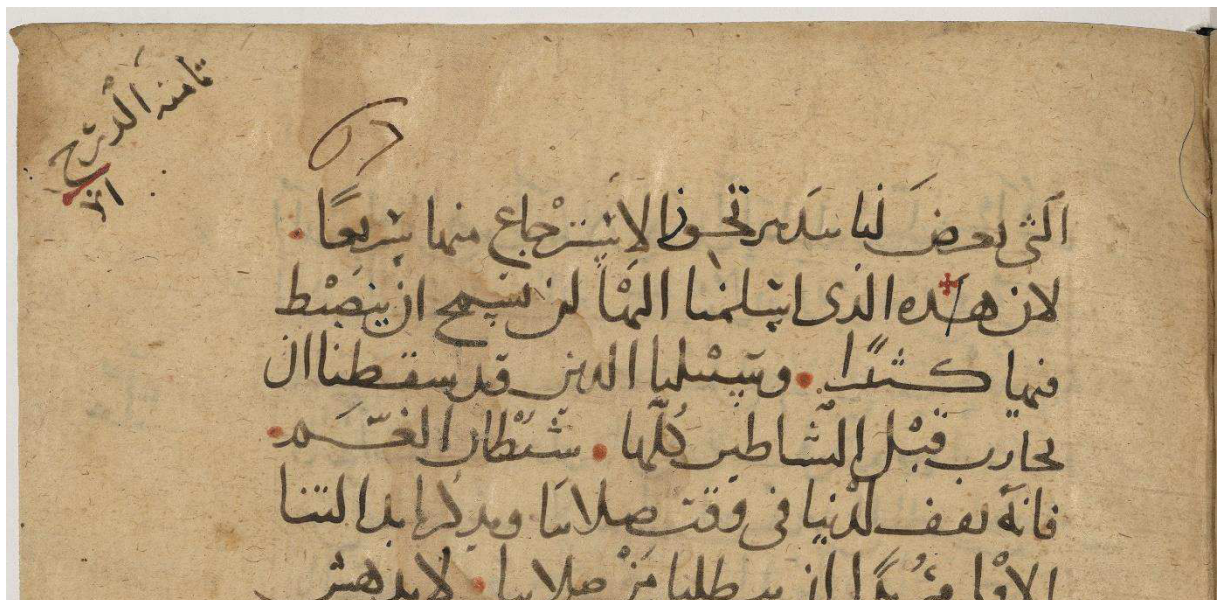 ثامنة الدرج
التى تعرض لنا الاسترجاع منها سريعًا .
لان هذه الذى اسلمنا اليها لن يسمح ان ينضبط
فيها كثيرًا . وسبيلنا الذين قد سقطنا ان
نحارب قبل الشاطين كلها . شيطان الغم .
فانه يقف لدينا فى وقت صلاتنا ويذكرنا بدالتنا
الاولى مريدًا ان يبطلنا من صلاتنا . لا يدهش